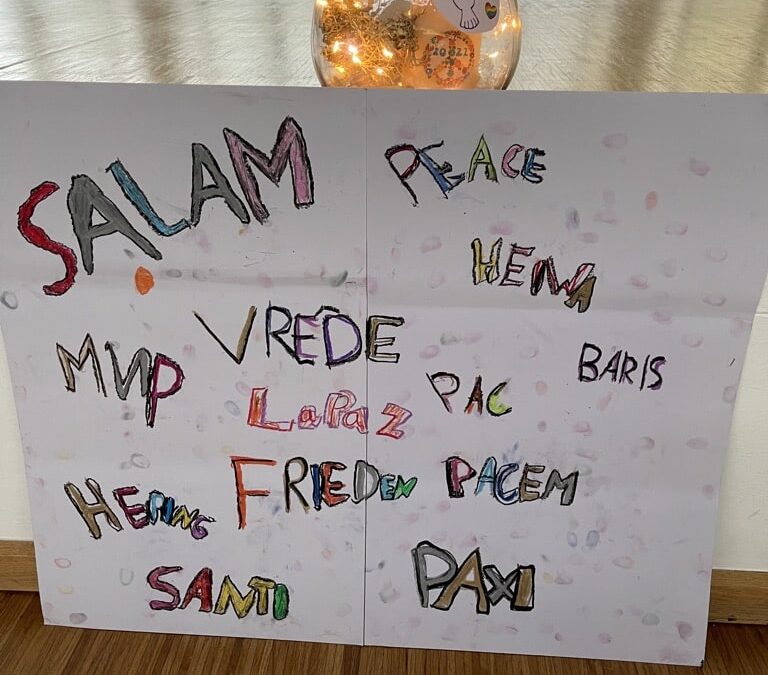 SALAM
PEACE
HEIWA
VREDE
МИР
BARIS
PAC
LaPaz
FRIEDEN
PACEM
HEPING
SANTI
PAXI